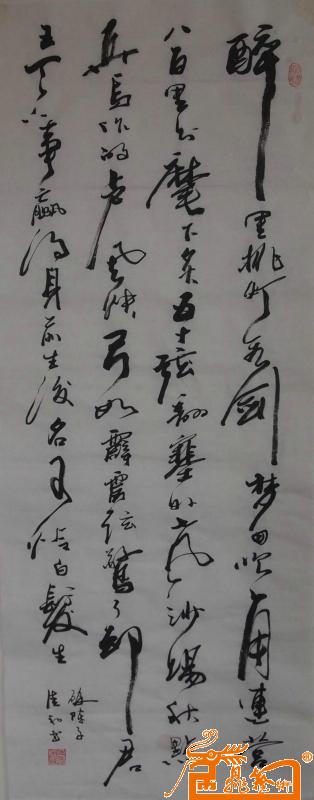 醉里挑灯看剑梦回吹角連营
八百里分麾下炙五十弦翻塞外声沙場秋點
兵马作的卢飞快弓如霹雳弦驚了却君
王天下事赢得身前生後名可怜白髮生
破陣子